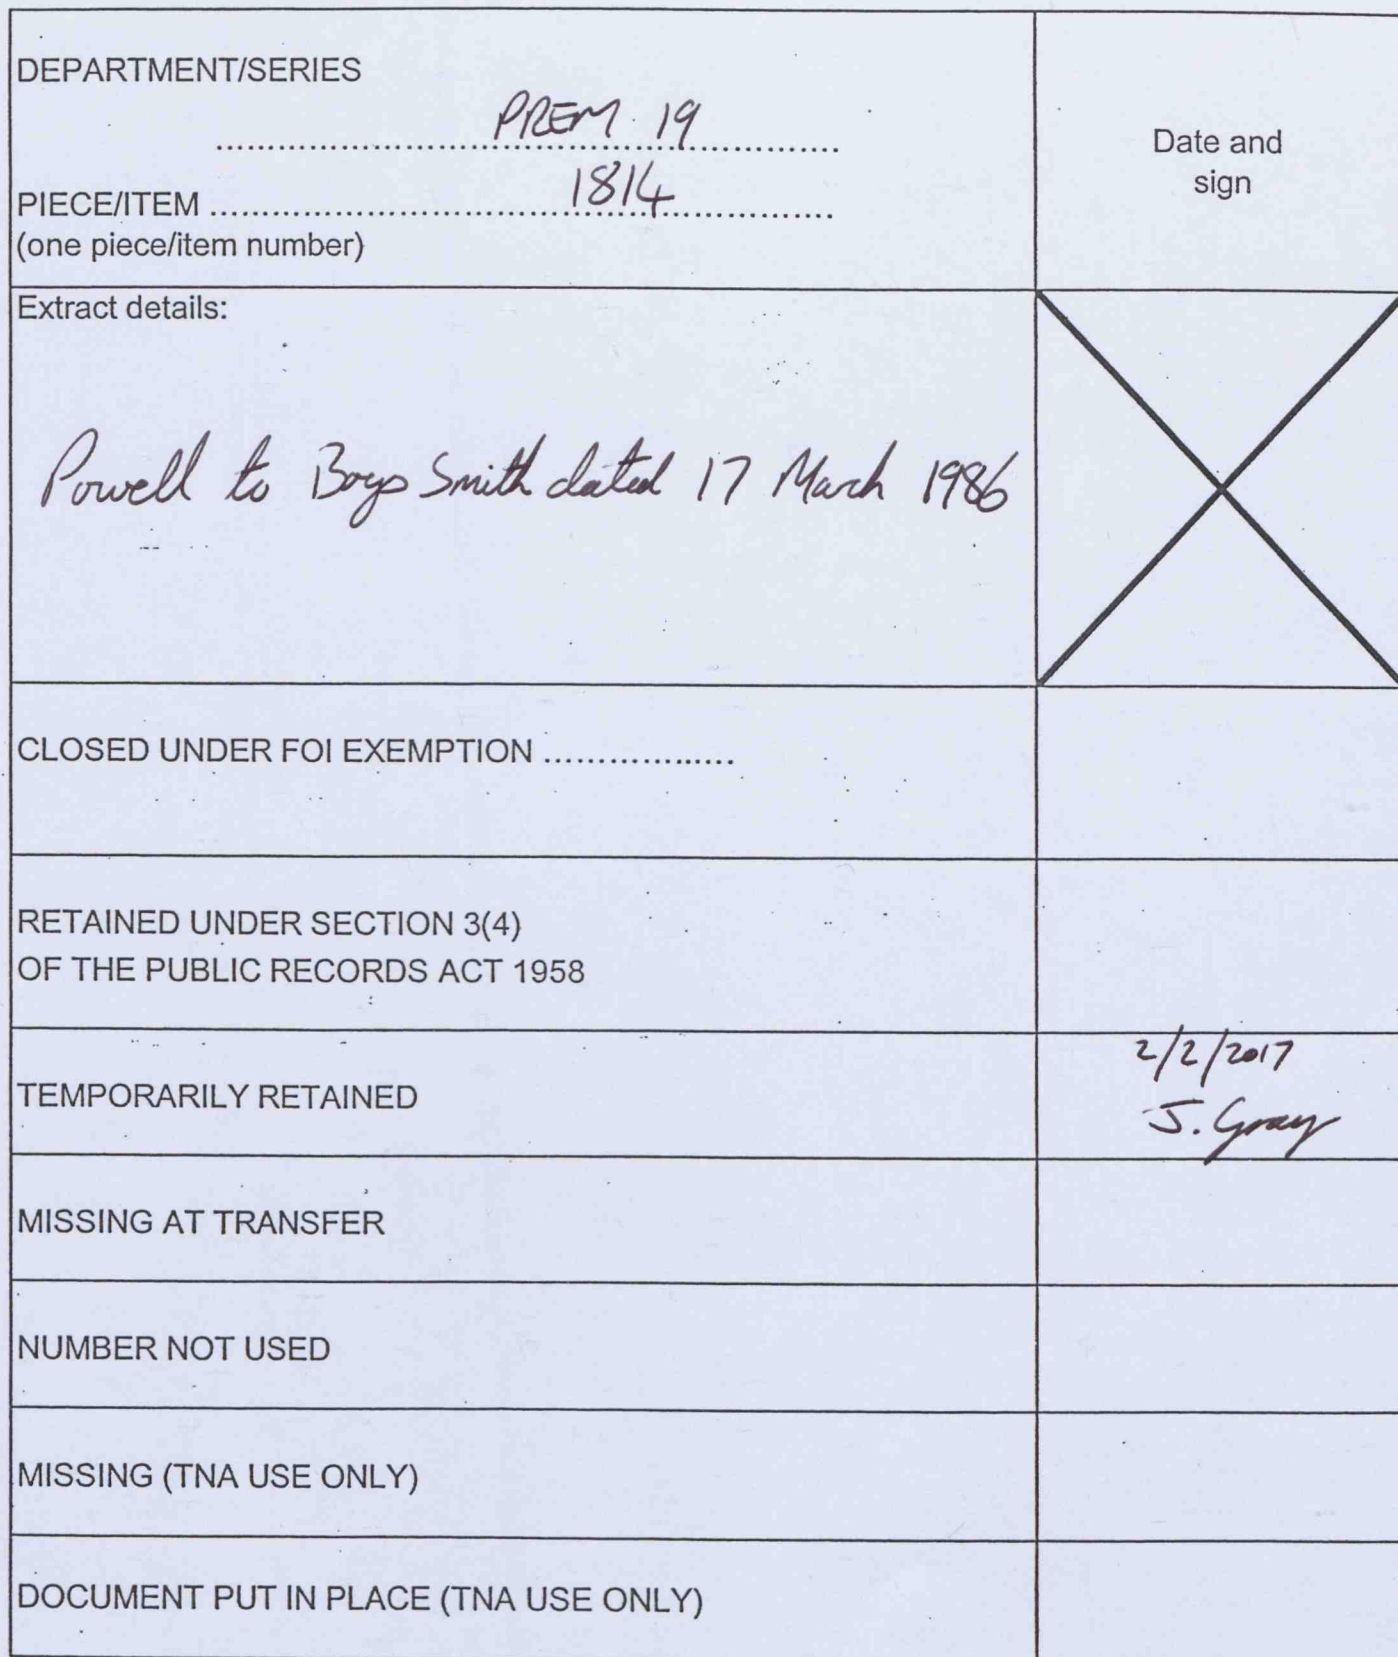 DEPARTMENT/SERIES
PREM 19
Date and
sign
PIECE/ITEM 1814
(one piece/item number)
Extract details:
Powell to Boys Smith dated 17 March 1986
CLOSED UNDER FOI EXEMPTION
RETAINED UNDER SECTION 3(4)
OF THE PUBLIC RECORDS ACT 1958
TEMPORARILY RETAINED
2/2/2017
J. Gray
MISSING AT TRANSFER
NUMBER NOT USED
MISSING (TNA USE ONLY)
DOCUMENT PUT IN PLACE (TNA USE ONLY)